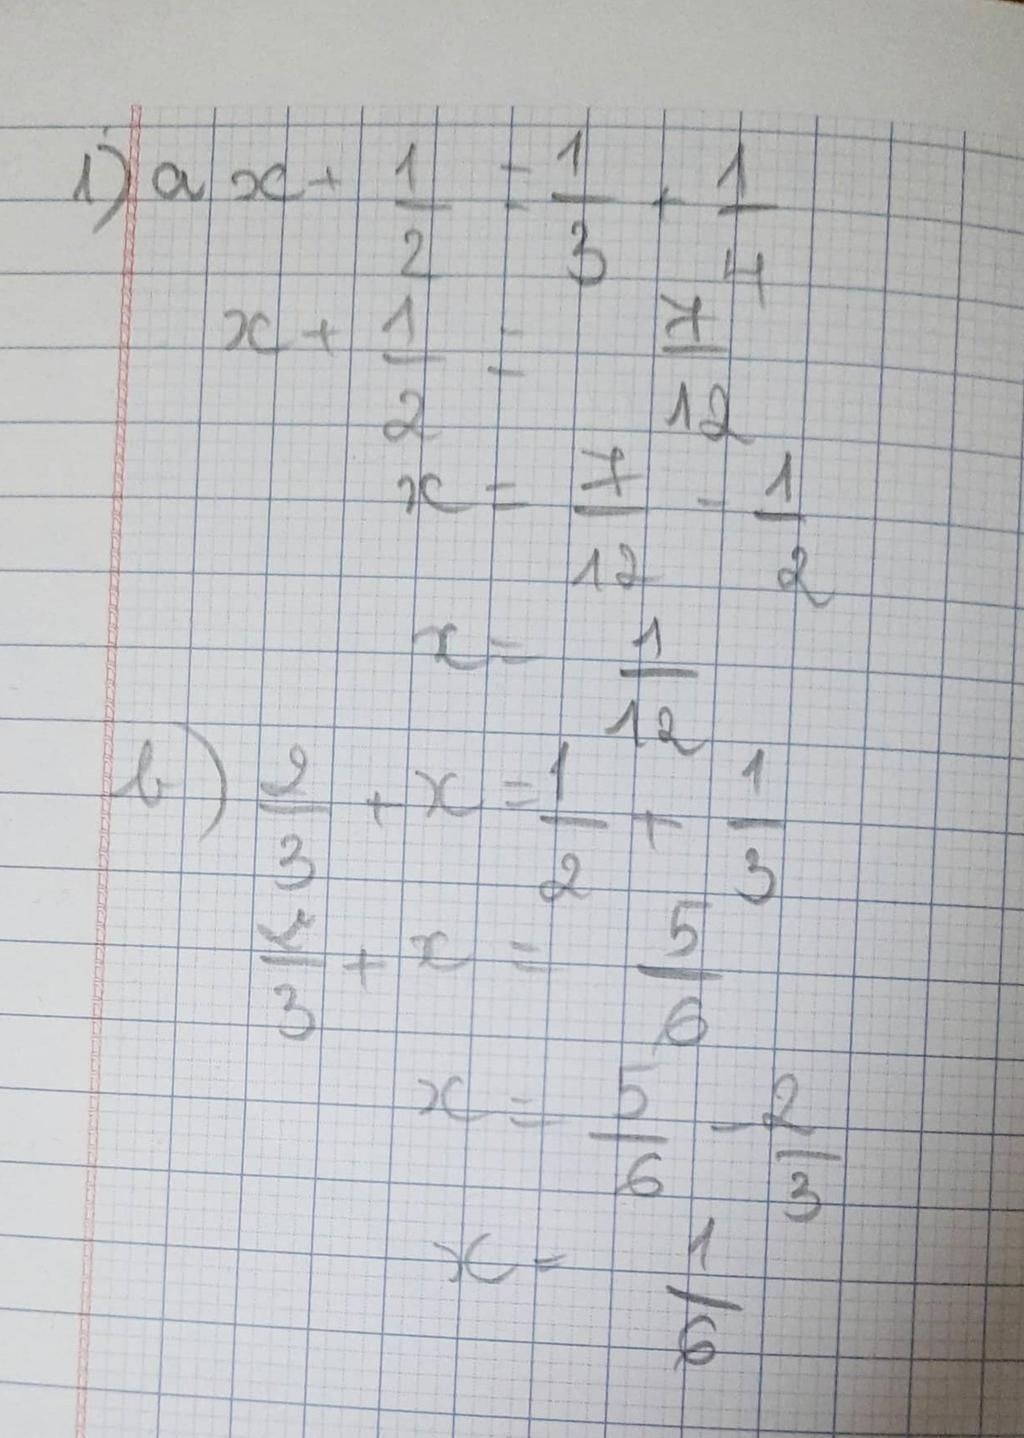 1) a x + 1/2 = 1/3 + 1/4
x + 1/2 = 7/12
x = 7/12 - 1/2
x = 1/12
b) 2/3 + x = 1/2 + 1/3
2/3 + x = 5/6
x = 5/6 - 2/3
x = 1/6